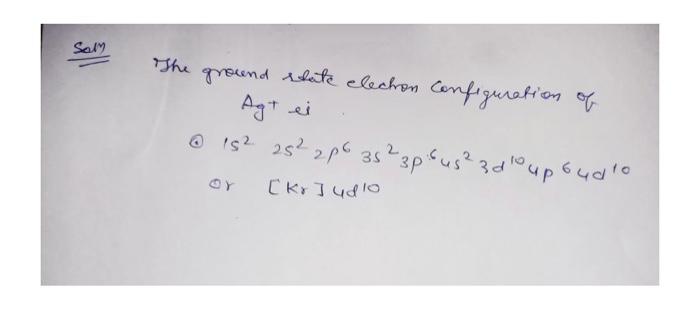 Solⁿ
The ground state electron configuration of
Ag+ is
⊙ 1s² 2s² 2p⁶ 3s² 3p⁶ 4s² 3d¹⁰ 4p⁶ 4d¹⁰
or [Kr] 4d¹⁰